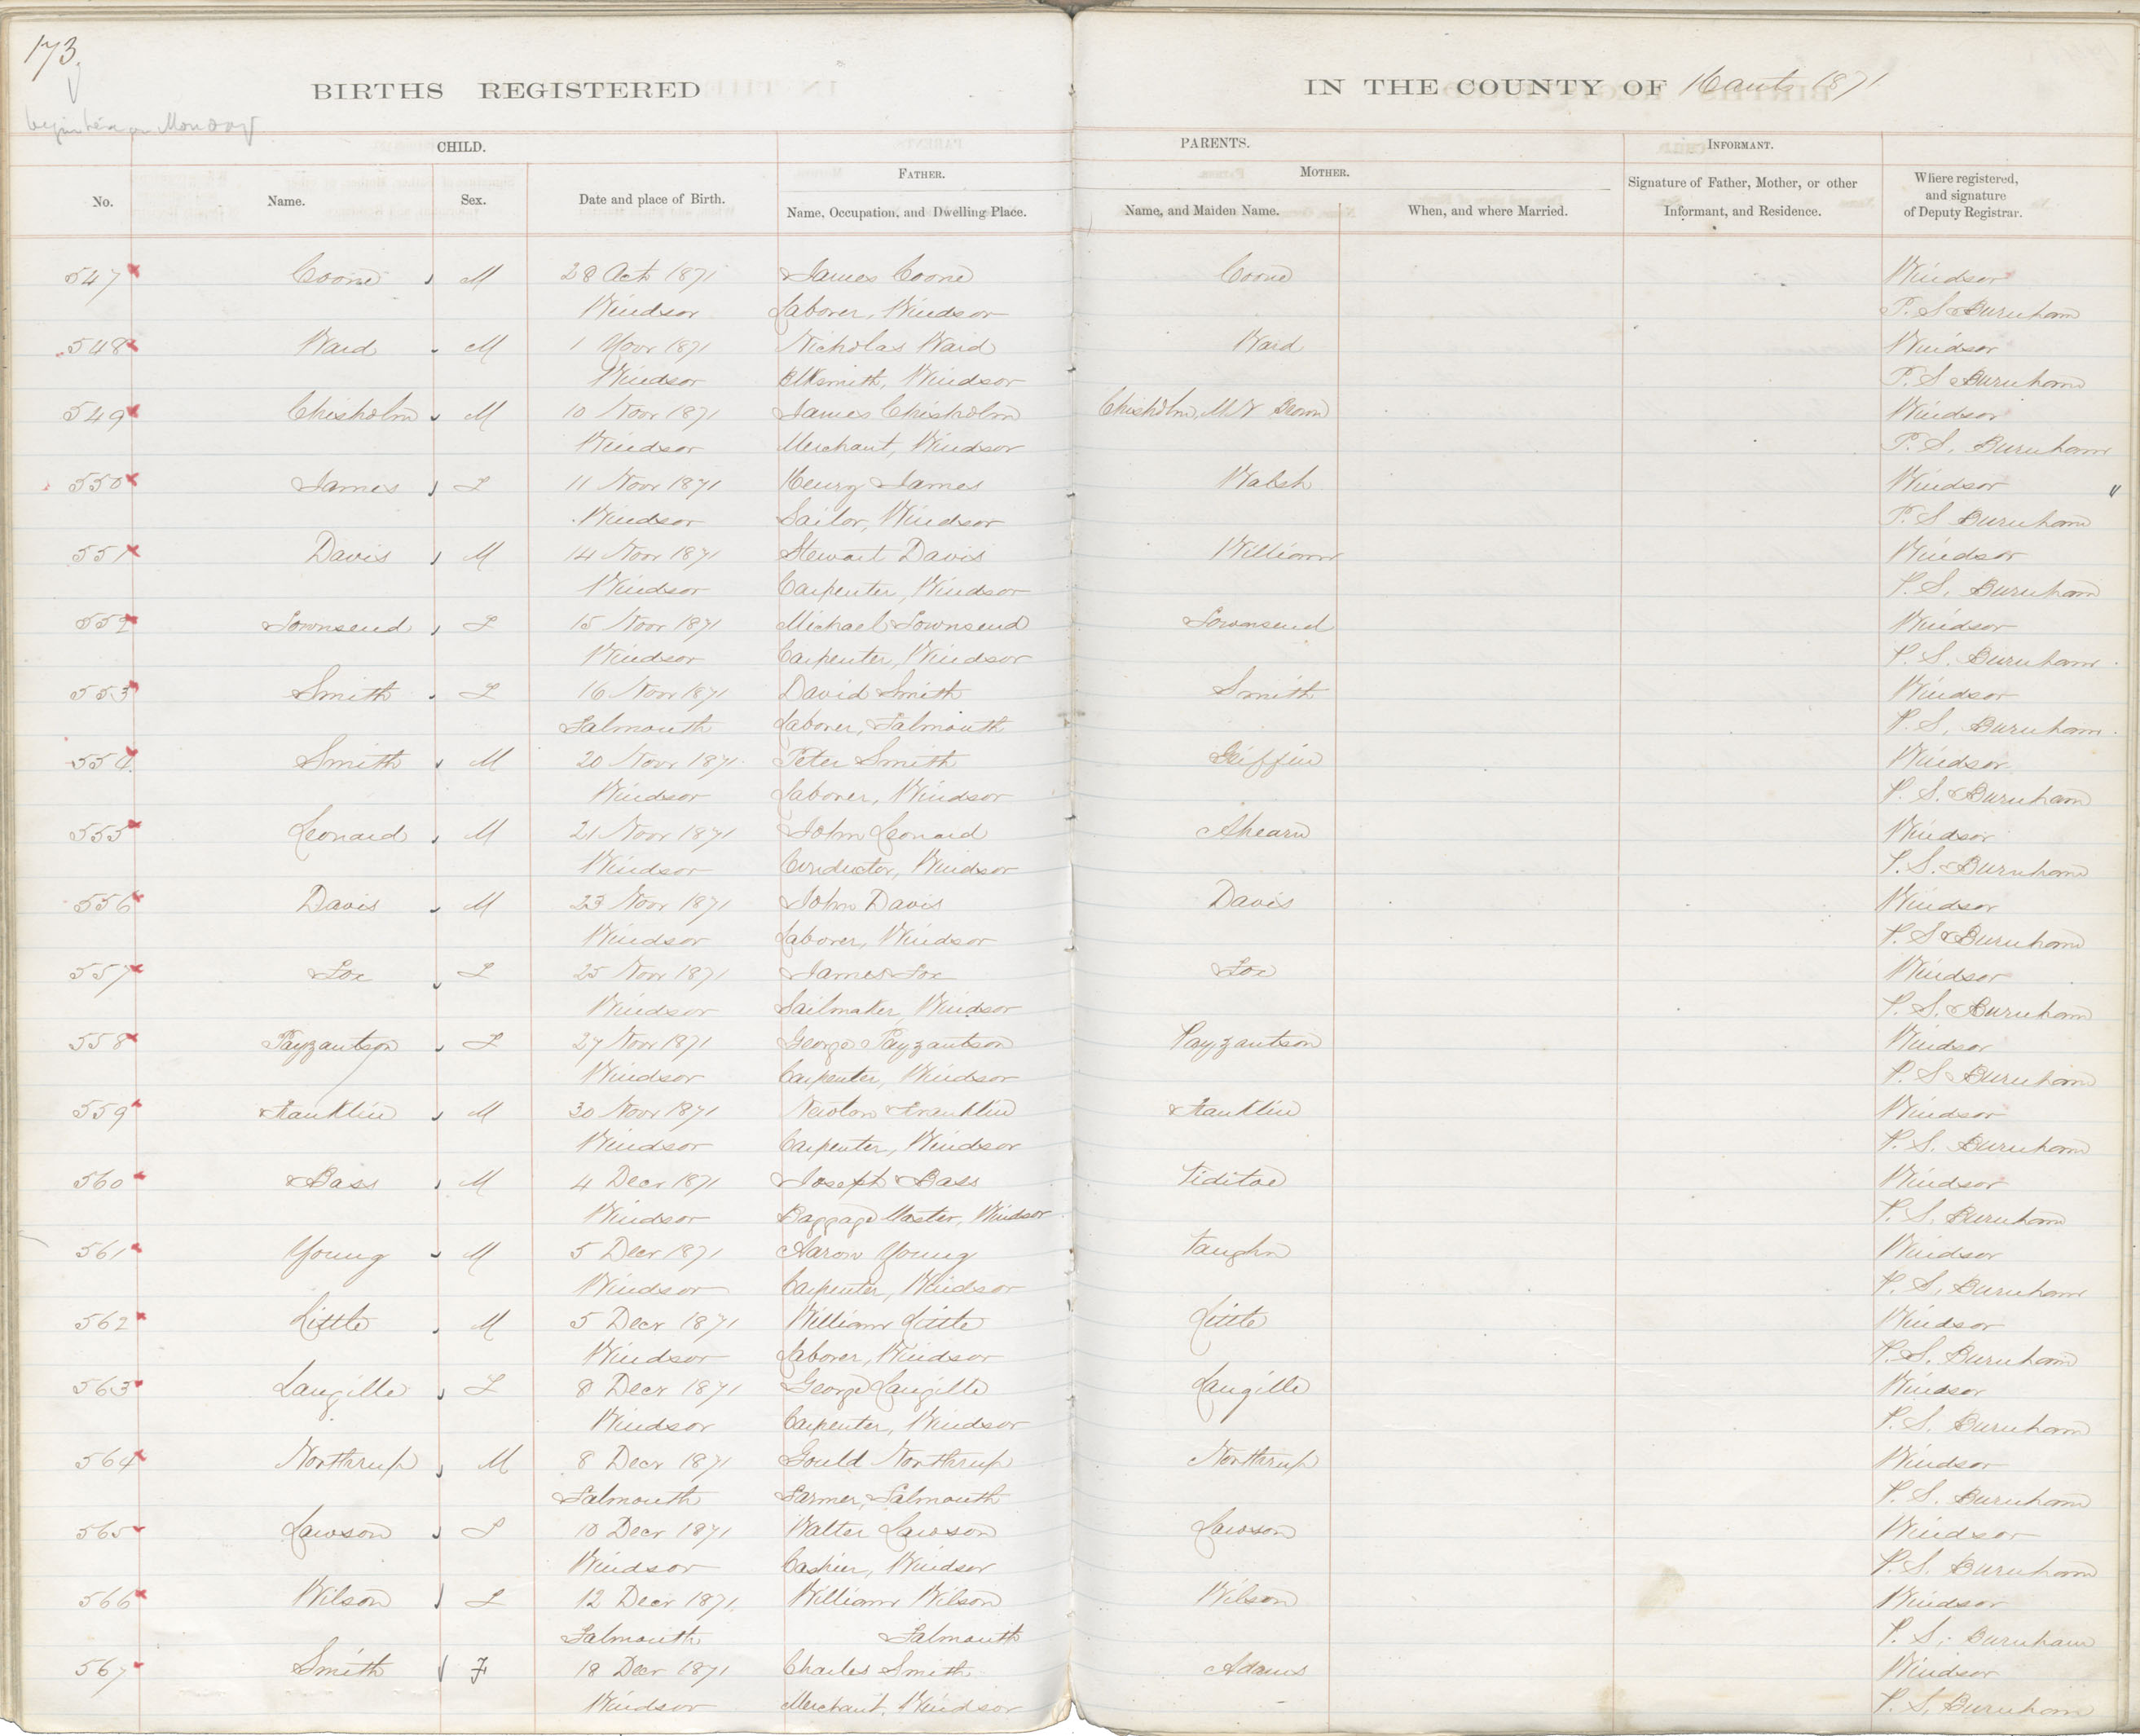 173.
BIRTHS REGISTERED IN THE COUNTY OF Hants 1871
begin here on Monday
CHILD. PARENTS. INFORMANT.
No. Name. Sex. Date and place of Birth. FATHER. Name, Occupation, and Dwelling Place. MOTHER. Name, and Maiden Name. When, and where Married. Signature of Father, Mother, or other Informant, and Residence. Where registered, and signature of Deputy Registrar.
547 Coone M 28 Oct 1871 James Coone Coone Windsor
Windsor Laborer, Windsor P. S. Burnham
548 Ward M 1 Novr 1871 Nicholas Ward Ward Windsor
Windsor Blksmith, Windsor P. S Burnham
549 Chisholm M 10 Novr 1871 James Chisholm Chisholm, M N Brown Windsor
Windsor Merchant, Windsor P. S. Burnham
550 James F 11 Novr 1871 Henry James Walsh Windsor
Windsor Sailor, Windsor P. S Burnham
551 Davis M 14 Novr 1871 Stewart Davis William Windsor
Windsor Carpenter, Windsor P. S. Burnham
552 Townsend F 15 Novr 1871 Michael Townsend Townsend Windsor
Windsor Carpenter, Windsor P. S. Burnham
553 Smith F 16 Novr 1871 David Smith Smith Windsor
Falmouth Laborer, Falmouth P. S. Burnham
554 Smith M 20 Novr 1871 Peter Smith Griffin Windsor
Windsor Laborer, Windsor P. S. Burnham
555 Leonard M 21 Novr 1871 John Leonard Ahearn Windsor
Windsor Conductor, Windsor P. S. Burnham
556 Davis M 23 Novr 1871 John Davis Davis Windsor
Windsor Laborer, Windsor P. S Burnham
557 Fox F 25 Novr 1871 James Fox Fox Windsor
Windsor Sailmaker, Windsor P. S. Burnham
558 Payzantson F 27 Novr 1871 George Payzantson Payzantson Windsor
Windsor Carpenter, Windsor P. S Burnham
559 Franklin M 30 Novr 1871 Newton Franklin Franklin Windsor
Windsor Carpenter, Windsor P. S. Burnham
560 Bass M 4 Decr 1871 Joseph Bass Viditoe Windsor
Windsor Baggage Master, Windsor P. S. Burnham
561 Young M 5 Decr 1871 Aaron Young Vaughn Windsor
Windsor Carpenter, Windsor P. S. Burnham
562 Little M 5 Decr 1871 William Little Little Windsor
Windsor Laborer, Windsor P. S. Burnham
563 Langille F 8 Decr 1871 George Langille Langille Windsor
Windsor Carpenter, Windsor P. S. Burnham
564 Northrup M 8 Decr 1871 Gould Northrup Northrup Windsor
Falmouth Farmer, Falmouth P. S. Burnham
565 Lawson F 10 Decr 1871 Walter Lawson Lawson Windsor
Windsor Cashier, Windsor P. S. Burnham
566 Wilson F 12 Decr 1871 William Wilson Wilson Windsor
Falmouth Falmouth P. S. Burnham
567 Smith F 18 Decr 1871 Charles Smith Adams Windsor
Windsor Merchant, Windsor P. S. Burnham